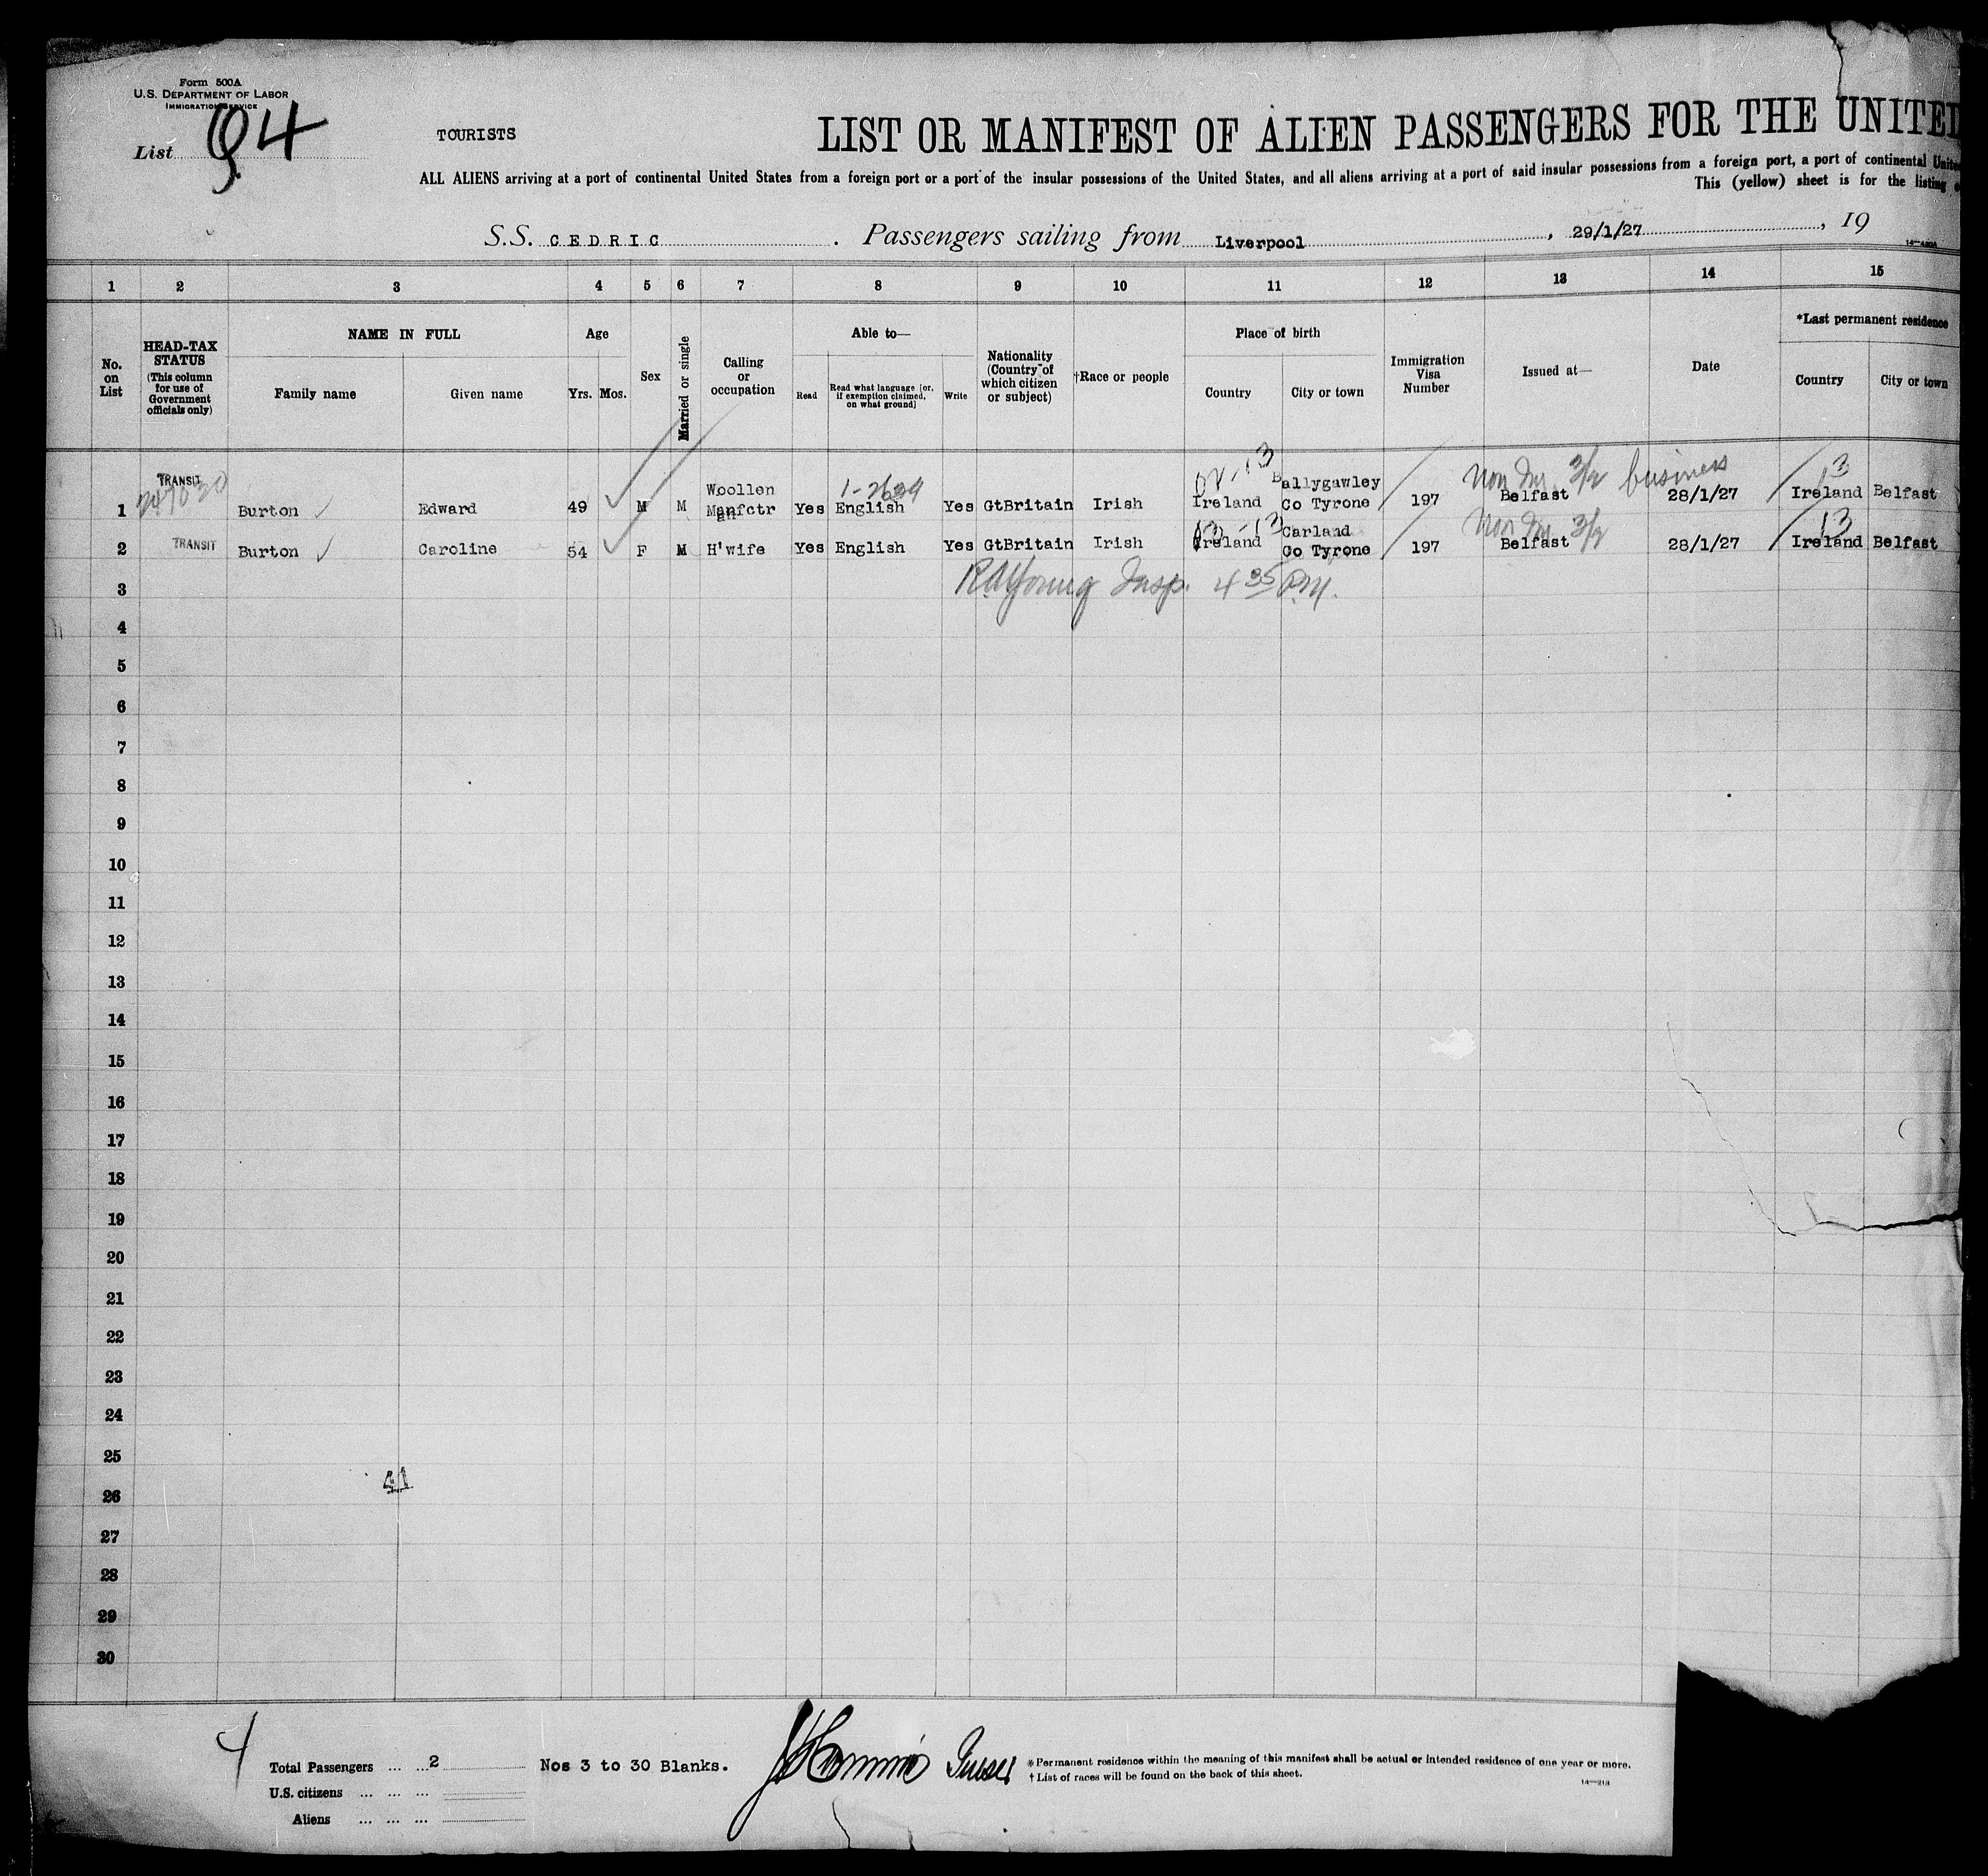 Form 500A
U.S. DEPARTMENT OF LABOR
IMMIGRATION SERVICE
List 94
TOURISTS
LIST OR MANIFEST OF ALIEN PASSENGERS FOR THE UNITED
ALL ALIENS arriving at a port of continental United States from a foreign port or a port of the insular possessions of the United States, and all aliens arriving at a port of said insular possessions from a foreign port, a port of continental United
This (yellow) sheet is for the listing
S.S. CEDRIC. Passengers sailing from Liverpool, 29/1/27, 19
14—430A
1 2 3 4 5 6 7 8 9 10 11 12 13 14 15
No. on List
HEAD-TAX STATUS (This column for use of Government officials only)
NAME IN FULL
Family name Given name
Age
Yrs. Mos.
Sex
Married or single
Calling or occupation
Able to—
Read Read what language [or, if exemption claimed, on what ground] Write
Nationality (Country of which citizen or subject)
†Race or people
Place of birth
Country City or town
Immigration Visa Number
Issued at—
Date
*Last permanent residence
Country City or town
Non Im. 3/2 business
1 TRANSIT Burton Edward 49 M M Woollen Manfctr Yes English Yes GtBritain Irish Ireland Ballygawley Co Tyrone 197 Belfast 28/1/27 13 Ireland Belfast
Non Im. 3/2
2 TRANSIT Burton Caroline 54 F M H'wife Yes English Yes GtBritain Irish Ireland Carland Co Tyrone 197 Belfast 28/1/27 13 Ireland Belfast
3 R.A. Young Insp. 4 35 P.M.
4
5
6
7
8
9
10
11
12
13
14
15
16
17
18
19
20
21
22
23
24
25
26
27
28
29
30
Total Passengers ... ... 2
U.S. citizens ... ... ...
Aliens ... ... ...
Nos 3 to 30 Blanks.
*Permanent residence within the meaning of this manifest shall be actual or intended residence of one year or more.
†List of races will be found on the back of this sheet.
14—213